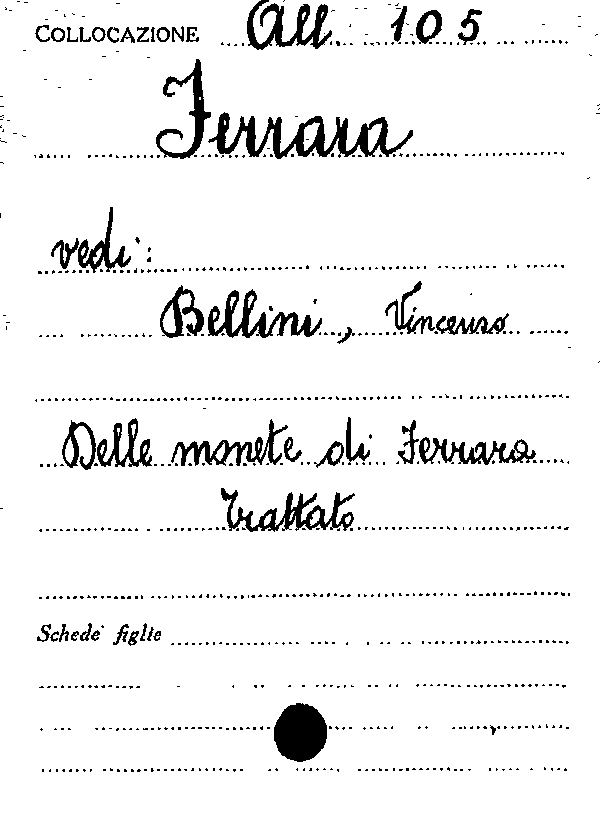 COLLOCAZIONE All. 105
Ferrara
vedi:
Bellini, Vincenzo
Delle monete di Ferrara
Trattato
Schede figlie